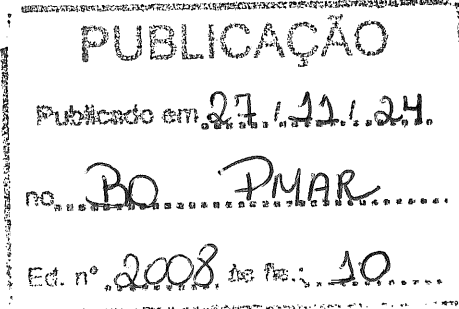 PUBLICAÇÃO
Publicado em 27/11/24.
no BO PMAR
Ed. nº 2008, às fls.: 10